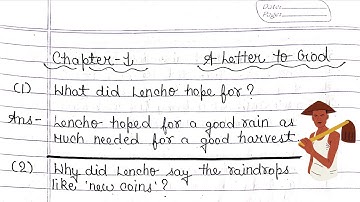 Date:
Page:
Chapter-1 A Letter to God
(1) What did Lencho hope for?
Ans- Lencho hoped for a good rain as
much needed for a good harvest
(2) Why did Lencho say the raindrops
like 'new coins'?